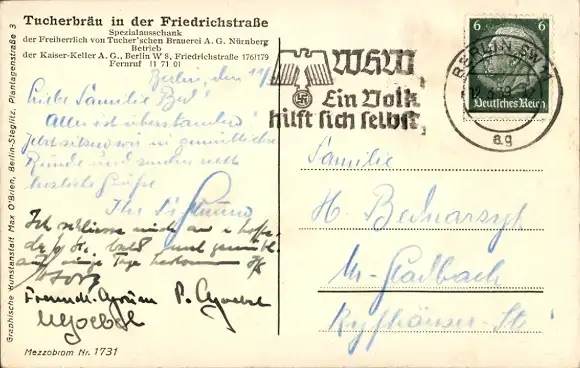 Tucherbräu in der Friedrichstraße
Spezialausschank
der Freiherrlich von Tucher'schen Brauerei A. G. Nürnberg
Betrieb
der Kaiser-Keller A. G., Berlin W 8, Friedrichstraße 176/179
Fernruf 11 71 01
Berlin, den 11/
Liebe Familie
Alles ist überstanden!
Jetzt sitzen wir in gemütlicher
Runde und senden
herzliche Grüße
Ihr
Ich schliesse mich an u hoffe,
bald und
auf einige Tage
P. Goebel
Goebel
Mezzobrom Nr. 1731
Graphische Kunstanstalt Max O'Brien, Berlin-Steglitz, Plantagenstraße 3
WHW,
Ein Volk
hilft sich selbst,
6 6
Deutsches Reich
BERLIN SW 11
ag
Familie
H. Bednarzyk
M-Gladbach
Kyffhäuser-St